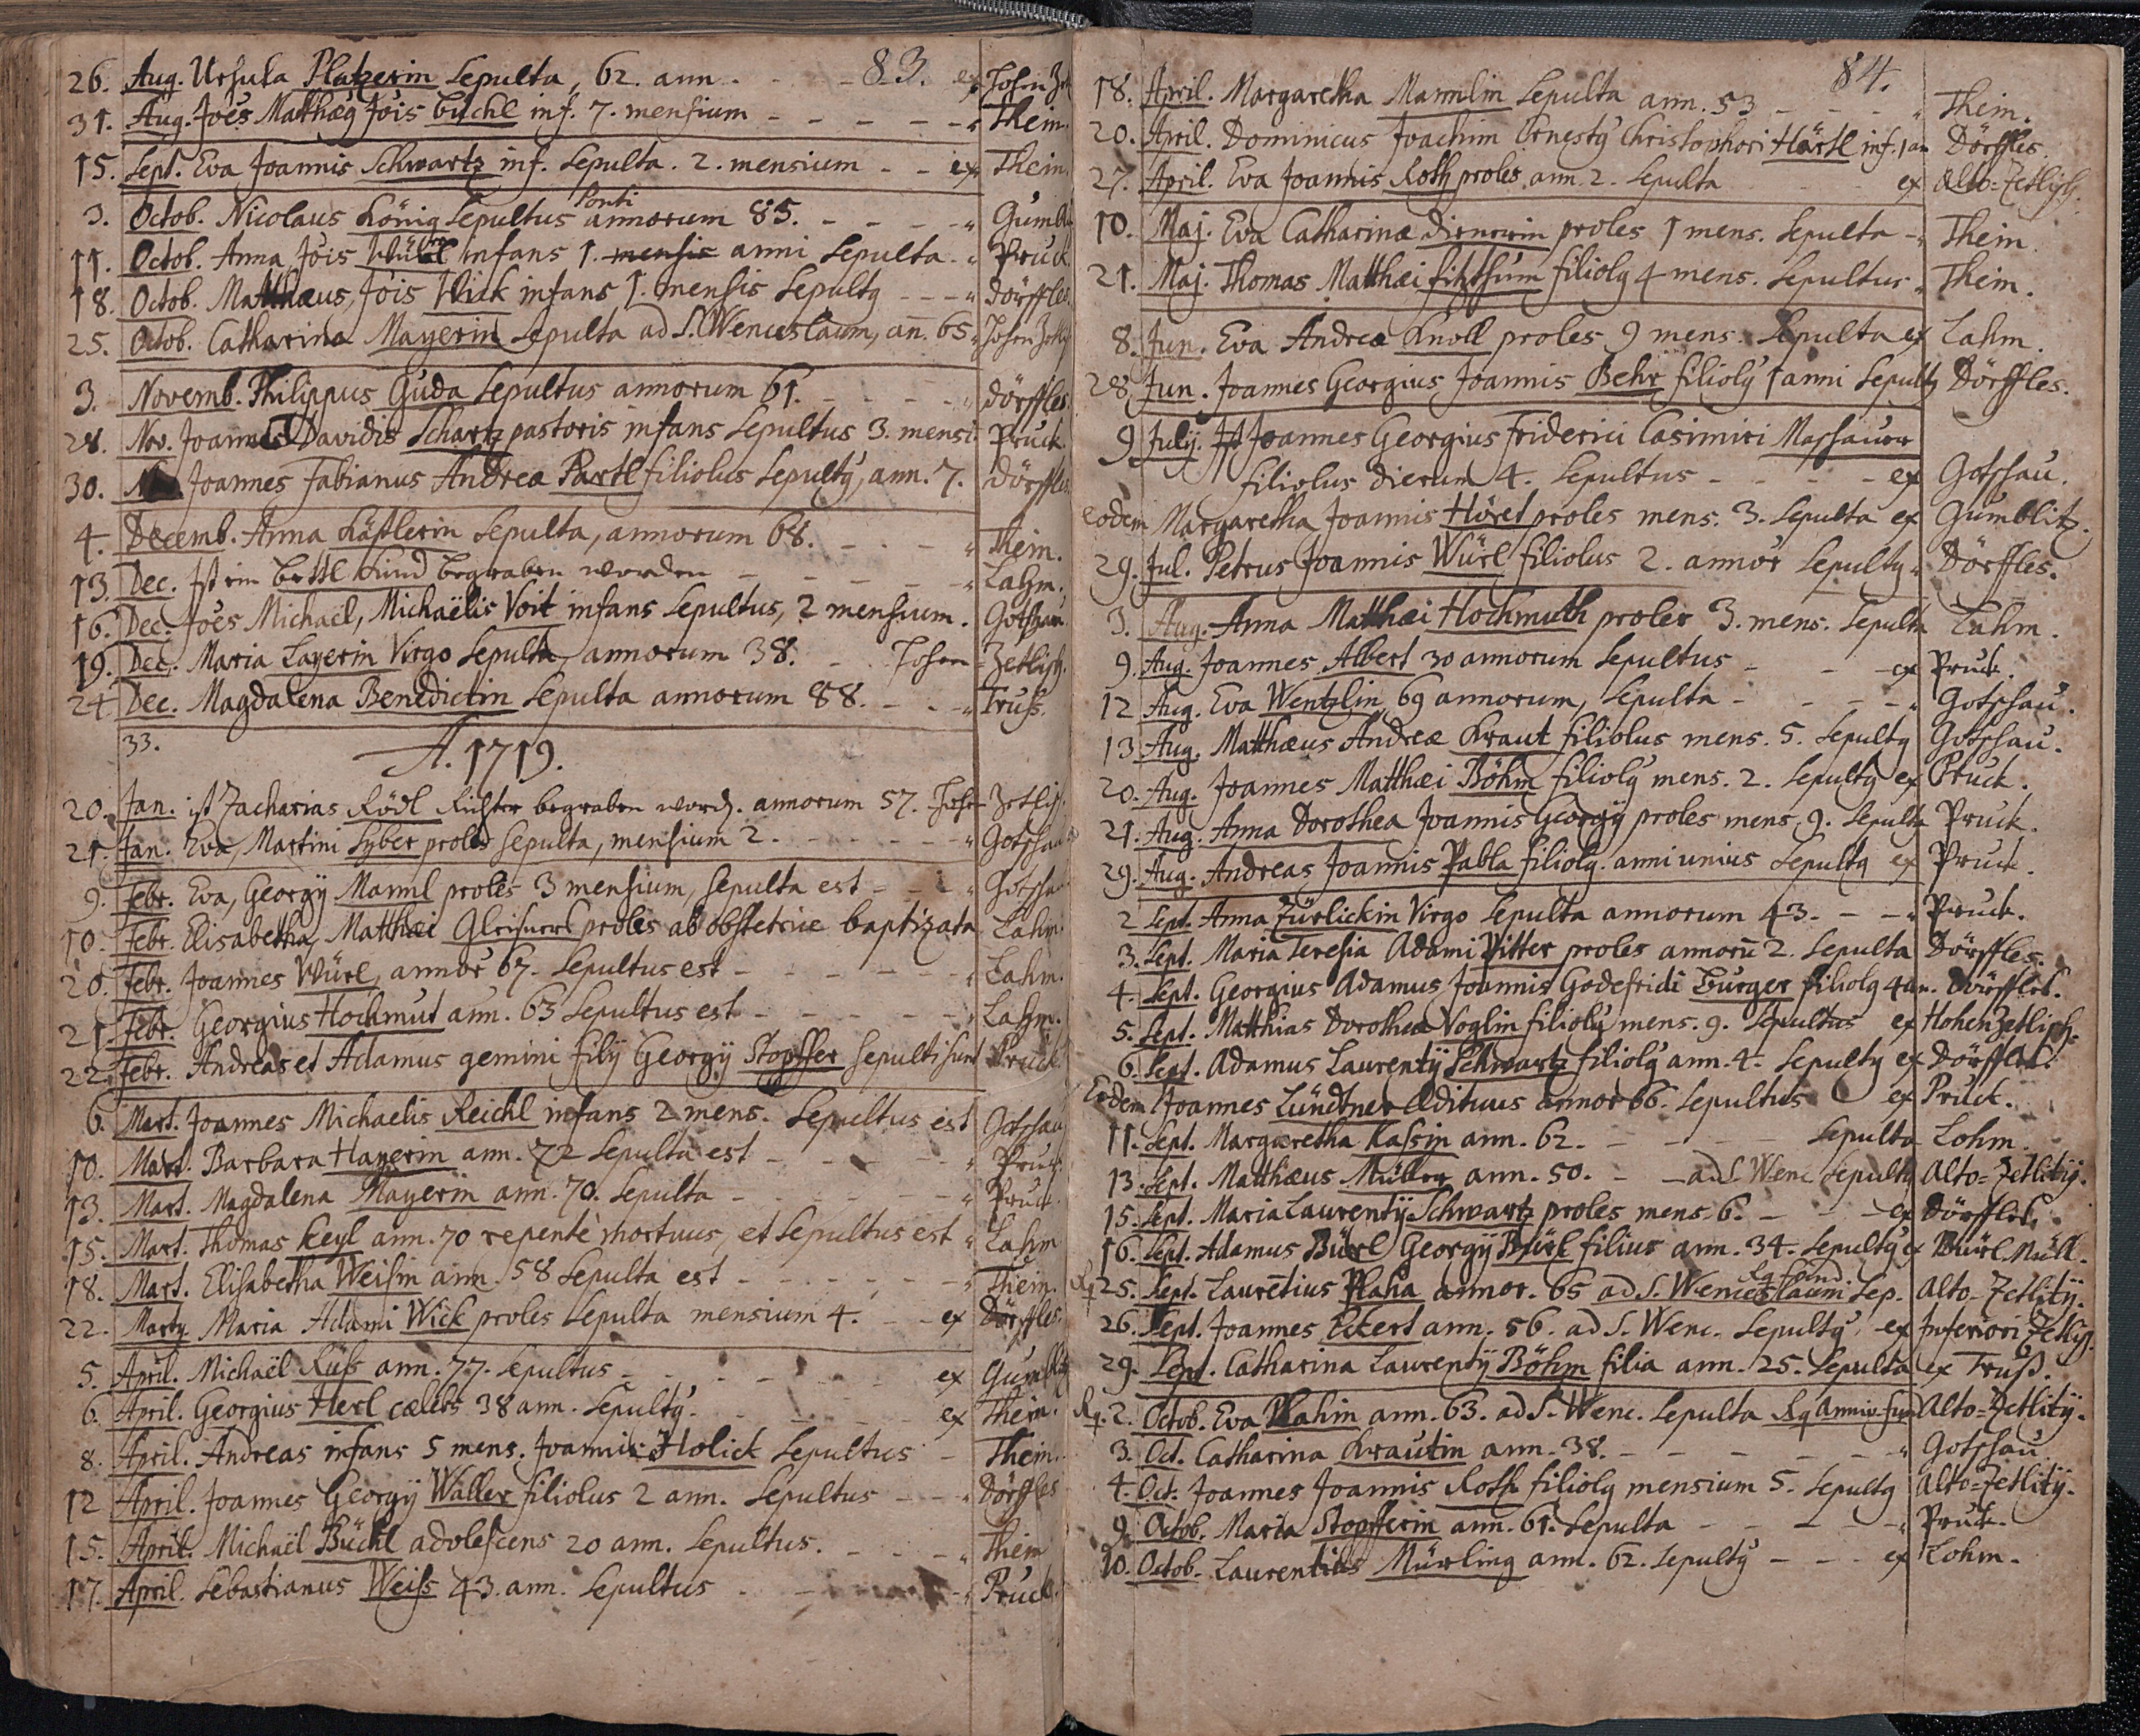 83.
26. Aug. Ursula Platzerin Sepulta, 62. ann. - - - ex Hohen Zet
31. Aug. Jo͂es Matthæꝰ Jo͂is Büchl inf. 7. mensium - - - - - " Thein.
15. Sept. Eva Joannis Schwartz inf. Sepulta. 2. mensium - - ex Thein.
Ponti
3. Octob. Nicolaus König Sepultus annorum 85. - - - - " Gumbli
11. Octob. Anna Jo͂is infans 1. mensis anni Sepulta - " Pruck
18. Octob. Matthæus, Jo͂is Wick infans 1. mensis Sepultꝰ - - - " Dörffles.
25. Octob. Catharina Mayerin Sepulta ad S. Wenceslaum, an͂. 65 " Hohen Zetlis
3. Novemb. Philippus Guda Sepultus annorum 61. - - - - " Dörffles.
28. Nov. Joannes Davidis Schartz pastoris infans Sepultus 3. mensi Pruck.
30. Joannes Fabianus Andreæ Partl filiolus Sepultꝰ, ann. 7. Dörffles
4. Decemb. Anna Sepulta, annorum 68. - - - - " Thein.
13. Dec. Ist ein bettl Kind begraben worden - - - - - " Lahm.
16. Dec. Joe͂s Michaël, Michaëlis Voit infans Sepultus, 2 mensium. Gotschau
19. Dec. Maria Layerin Virgo Sepulta, annorum 38. - Hohen Zetlisch.
24 Dec. Magdalena Benedictin Sepulta annorum 88. - - - " Truß.
33. A. 1719.
20. Jan. ist Zacharias Rödl Richter begraben word. annorum 57. Hohen Zetlisch.
21. Jan. Eva, Martini Lyber proles Sepulta, mensium 2. - - - - - " Gotschau
9. Febr. Eva, Georgÿ Mannl proles 3 mensium, Sepulta est - - - " Gotschau
10. Febr. Elisabetha, Matthæi proles ab obstetrice baptizata Lahm.
20. Febr. Joannes Würl, annor͂ 67. Sepultus est - - - - - - " Lahm.
21. Febr. Georgius Hochmut ann. 63 Sepultus est - - - - - - " Lahm.
22. Febr. Andreas et Adamus gemini filÿ Georgÿ Stopffer Sepulti sunt Pruck
6. Mart. Joannes Michaelis Reichl infans 2 mens. Sepultus est Gotschau
10. Mart. Barbara Hayerin ann. 72 Sepulta est - - - - - - " Pruck.
13. Mart. Magdalena Mayerin ann. 70. Sepulta - - - - - - " Pruck.
15. Mart. Thomas Keyl ann. 70 repentè mortuus, et Sepultus est " Lahm
18. Mart. Elisabetha Weisin ann. 58 Sepulta est - - - - - - " Thein.
22. Martÿ Maria Adami Wick proles Sepulta mensium 4. - - ex Dörffles.
5. April. Michaël Rüß ann. 77. Sepultus - - - - - - ex Gumblitz
6. April. Georgius Herl cælebs 38 ann. Sepultꝰ. - - - - ex Thein.
8. April. Andreas infans 5 mens. Joannis Holick Sepultus - Thein.
12 April. Joannes Georgÿ Waller filiolus 2 ann. Sepultus - - - " Dörffles
15. April. Michaël Büchl adolescens 20 ann. Sepultus. - - - - " Thein
17. April. Sebastianus Weiss 43. ann. Sepultus - - - - " Pruck.
84.
18. April. Margaretha Mannlin Sepulta ann. 53 - - - - " Thein.
20. April. Dominicus Joachim Ernestꝰ Christophori Härtl inf. 1 an Dörffles.
27. April. Eva Joannis Roth proles ann. 2. Sepulta ex Alto-Zetlisch.
10. Maj. Eva Catharinæ proles 1 mens. Sepulta - " Thein.
21. Maj. Thomas Matthæi fitzthum filiolꝰ 4 mens. Sepultus " Thein.
8. Jun. Eva Andreæ Knoll proles 9 mens. Sepulta ex Lahm.
28. Jun. Joannes Georgius Joannis Behr filiolꝰ 1 anni Sepultꝰ Dörffles.
9 Julÿ. Joannes Georgius Friderici Casimiri Massauer
filiolus dierum 4. Sepultus - - - - - ex Gotschau.
eodem Margaretha Joannis Hörel proles mens. 3. Sepulta ex Gumblitz.
29. Jul. Petrus Joannis Würl filiolus 2. annor͂ Sepultꝰ " Dörffles.
3. Aug. Anna Matthæi Hochmuth proles 3. mens. Sepulta Lahm.
9. Aug. Joannes Albert 30 annorum Sepultus - - - ex Pruck.
12 Aug. Eva Wentzlin, 69 annorum, Sepulta - - - - - " Gotschau.
13 Aug. Matthæus Andreæ Kraut filiolus mens. 5. Sepultꝰ Gotschau.
20. Aug. Joannes Matthæi Böhm filiolꝰ mens. 2. Sepultꝰ ex Pruck.
21. Aug. Anna Dorothea Joannis Georgÿ proles mens. 9. Sepulta Pruck.
29. Aug. Andreas Joannis Pabla filiolꝰ. anni unius Sepultꝰ ex Pruck.
2 Sept. Anna Zürlickin Virgo Sepulta annorum 43. - - - " Pruck.
3. Sept. Maria Teresia Adami Pitter proles annorū 2. Sepulta Dörffles.
4. Sept. Georgius Adamus Joannis Godefridi Burger filiolꝰ 4 an. Dörffles.
5. Sept. Matthias Dorotheæ Voglin filiolꝰ mens. 9. Sepultus ex Hohen Zetlisch.
6. Sept. Adamus Laurentÿ Schwartz filiolꝰ ann. 4. Sepultꝰ ex Dörffles.
Eodem Joannes Lündtner Ædituus annor 66. Sepultus ex Pruck.
11. Sept. Margaretha Kassin ann. 62. - - - - - Sepulta Lohm.
13. Sept. Matthæus Müller ann. 50. - - ad S. Wenc Sepultꝰ Alto-Zetlitÿ.
15. Sept. Maria Laurentÿ Schwartz proles mens. 6. - - - ex Dörffles.
16. Sept. Adamus Bürl Georgÿ Bürl filius ann. 34. Sepultꝰ ex Bürl Müll.
Rq. fund.
Rq 25. Sept. Laurētius Plaha annor. 65 ad S. Wenceslaum Sep. Alto-Zetlitÿ.
26. Sept. Joannes Eckert ann. 56. ad S. Wenc. Sepultꝰ ex Inferiori Zetlisch.
29. Sept. Catharina Laurentÿ Böhm filia ann. 25. Sepulta ex Truß.
Rq. 2. Octob. Eva Plahin ann. 63. ad S. Wenc. Sepulta Rq anniv. fun Alto-Zetlitÿ.
3. Oct. Catharina Krautin ann. 38. - - - - - - " Gotschau
4. Oct. Joannes Joannis Roth filiolꝰ mensium 5. Sepultꝰ Alto-Zetlitÿ.
9. Octob. Maria Stopfferin ann. 61. Sepulta - - - - - " Pruck.
10. Octob. Laurentius Mürling ann. 62. Sepultꝰ - - - ex Lohm.